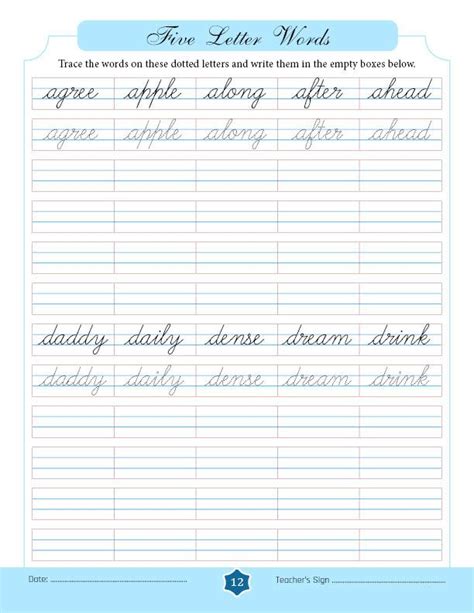 Five Letter Words
Trace the words on these dotted letters and write them in the empty boxes below.
agree apple along after ahead
agree apple along after ahead
daddy daily dense dream drink
daddy daily dense dream drink
Date: 12 Teacher's Sign